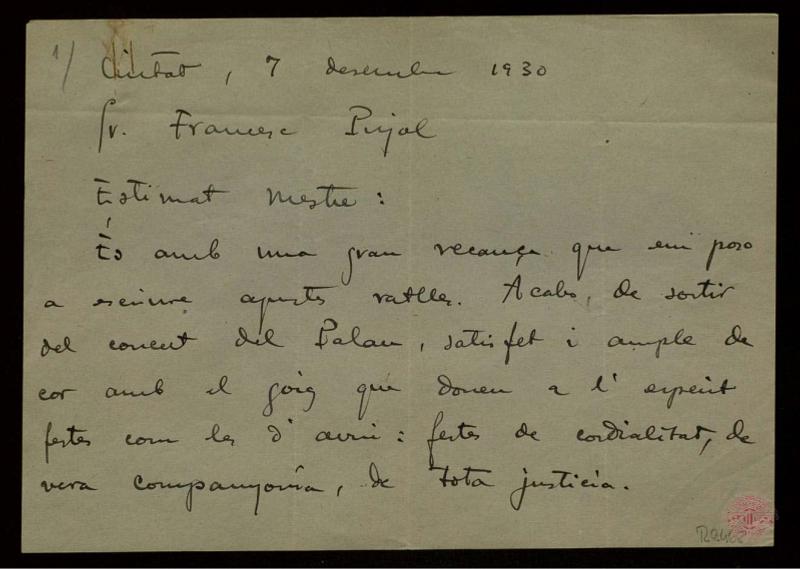 1/
Ciutat, 7 desembre 1930
Sr. Francesc Pujol
Estimat Mestre:
És amb una gran recança que em poso
a escriure aquestes ratlles. Acabo, de sortir
del concert del Palau, satisfet i ample de
cor amb el goig que donen a l'esperit
festes com les d'avui: festes de cordialitat, de
vera companyonia, de tota justicia.